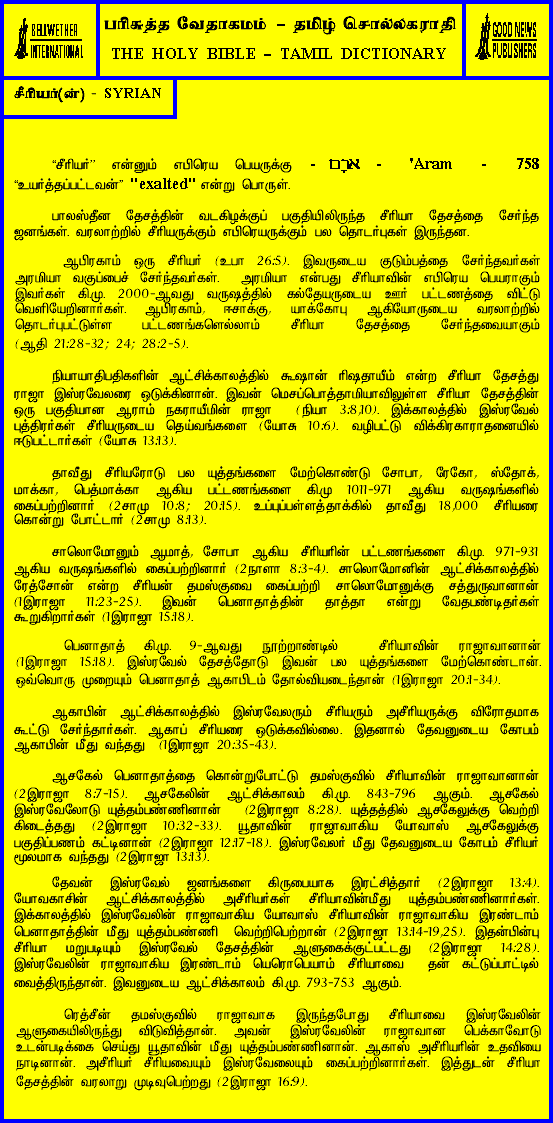 BELLWETHER
INTERNATIONAL
பரிசுத்த வேதாகமம் – தமிழ் சொல்லகராதி
THE HOLY BIBLE – TAMIL DICTIONARY
GOOD NEWS
PUBLISHERS
சீரியர்(ன்) - SYRIAN
“சீரியர்” என்னும் எபிரெய பெயருக்கு - אֲרָם - 'Aram - 758
“உயர்த்தப்பட்டவன்” "exalted" என்று பொருள்.
பாலஸ்தீன தேசத்தின் வடகிழக்குப் பகுதியிலிருந்த சீரியா தேசத்தை சேர்ந்த
ஜனங்கள். வரலாற்றில் சீரியருக்கும் எபிரெயருக்கும் பல தொடர்புகள் இருந்தன.
ஆபிரகாம் ஒரு சீரியர் (உபா 26:5). இவருடைய குடும்பத்தை சேர்ந்தவர்கள்
அரமியா வகுப்பைச் சேர்ந்தவர்கள். அரமியா என்பது சீரியாவின் எபிரெய பெயராகும்
இவர்கள் கி.மு. 2000-ஆவது வருஷத்தில் கல்தேயருடைய ஊர் பட்டணத்தை விட்டு
வெளியேறினார்கள். ஆபிரகாம், ஈசாக்கு, யாக்கோபு ஆகியோருடைய வரலாற்றில்
தொடர்புபட்டுள்ள பட்டணங்களெல்லாம் சீரியா தேசத்தை சேர்ந்தவையாகும்
(ஆதி 21:28-32; 24; 28:2-5).
நியாயாதிபதிகளின் ஆட்சிக்காலத்தில் கூஷான் ரிஷதாயீம் என்ற சீரியா தேசத்து
ராஜா இஸ்ரவேலரை ஒடுக்கினான். இவன் மெசப்பொத்தாமியாவிலுள்ள சீரியா தேசத்தின்
ஒரு பகுதியான ஆராம் நகராயீமின் ராஜா (நியா 3:8,10). இக்காலத்தில் இஸ்ரவேல்
புத்திரர்கள் சீரியருடைய தெய்வங்களை (யோசு 10:6). வழிபட்டு விக்கிரகாராதனையில்
ஈடுபட்டார்கள் (யோசு 13:13).
தாவீது சீரியரோடு பல யுத்தங்களை மேற்கொண்டு சோபா, ரேகோ, ஸ்தோக்,
மாக்கா, பெத்மாக்கா ஆகிய பட்டணங்களை கி.மு 1011-971 ஆகிய வருஷங்களில்
கைப்பற்றினார் (2சாமு 10:8; 20:15). உப்புப்பள்ளத்தாக்கில் தாவீது 18,000 சீரியரை
கொன்று போட்டார் (2சாமு 8:13).
சாலொமோனும் ஆமாத், சோபா ஆகிய சீரியரின் பட்டணங்களை கி.மு. 971-931
ஆகிய வருஷங்களில் கைப்பற்றினார் (2நாளா 8:3-4). சாலொமோனின் ஆட்சிக்காலத்தில்
ரேத்சோன் என்ற சீரியன் தமஸ்குவை கைப்பற்றி சாலொமோனுக்கு சத்துருவானான்
(1இராஜா 11:23-25). இவன் பெனாதாத்தின் தாத்தா என்று வேதபண்டிதர்கள்
கூறுகிறார்கள் (1இராஜா 15:18).
பெனாதாத் கி.மு. 9-ஆவது நூற்றாண்டில் சீரியாவின் ராஜாவானான்
(1இராஜா 15:18). இஸ்ரவேல் தேசத்தோடு இவன் பல யுத்தங்களை மேற்கொண்டான்.
ஒவ்வொரு முறையும் பெனாதாத் ஆகாபிடம் தோல்வியடைந்தான் (1இராஜா 20:1-34).
ஆகாபின் ஆட்சிக்காலத்தில் இஸ்ரவேலரும் சீரியரும் அசீரியருக்கு விரோதமாக
கூட்டு சேர்ந்தார்கள். ஆகாப் சீரியரை ஒடுக்கவில்லை. இதனால் தேவனுடைய கோபம்
ஆகாபின் மீது வந்தது (1இராஜா 20:35-43).
ஆசகேல் பெனாதாத்தை கொன்றுபோட்டு தமஸ்குவில் சீரியாவின் ராஜாவானான்
(2இராஜா 8:7-15). ஆசகேலின் ஆட்சிக்காலம் கி.மு. 843-796 ஆகும். ஆசகேல்
இஸ்ரவேலோடு யுத்தம்பண்ணினான் (2இராஜா 8:28). யுத்தத்தில் ஆசகேலுக்கு வெற்றி
கிடைத்தது (2இராஜா 10:32-33). யூதாவின் ராஜாவாகிய யோவாஸ் ஆசகேலுக்கு
பகுதிப்பணம் கட்டினான் (2இராஜா 12:17-18). இஸ்ரவேலர் மீது தேவனுடைய கோபம் சீரியர்
மூலமாக வந்தது (2இராஜா 13:13).
தேவன் இஸ்ரவேல் ஜனங்களை கிருபையாக இரட்சித்தார் (2இராஜா 13:4).
யோவகாசின் ஆட்சிக்காலத்தில் அசீரியர்கள் சீரியாவின்மீது யுத்தம்பண்ணினார்கள்.
இக்காலத்தில் இஸ்ரவேலின் ராஜாவாகிய யோவாஸ் சீரியாவின் ராஜாவாகிய இரண்டாம்
பெனாதாத்தின் மீது யுத்தம்பண்ணி வெற்றிபெற்றான் (2இராஜா 13:14-19,25). இதன்பின்பு
சீரியா மறுபடியும் இஸ்ரவேல் தேசத்தின் ஆளுகைக்குட்பட்டது (2இராஜா 14:28).
இஸ்ரவேலின் ராஜாவாகிய இரண்டாம் யெரொபெயாம் சீரியாவை தன் கட்டுப்பாட்டில்
வைத்திருந்தான். இவனுடைய ஆட்சிக்காலம் கி.மு. 793-753 ஆகும்.
ரெத்சீன் தமஸ்குவில் ராஜாவாக இருந்தபோது சீரியாவை இஸ்ரவேலின்
ஆளுகையிலிருந்து விடுவித்தான். அவன் இஸ்ரவேலின் ராஜாவான பெக்காவோடு
உடன்படிக்கை செய்து யூதாவின் மீது யுத்தம்பண்ணினான். ஆகாஸ் அசீரியரின் உதவியை
நாடினான். அசீரியர் சீரியவையும் இஸ்ரவேலையும் கைப்பற்றினார்கள். இத்துடன் சீரியா
தேசத்தின் வரலாறு முடிவுபெற்றது (2இராஜா 16:9).